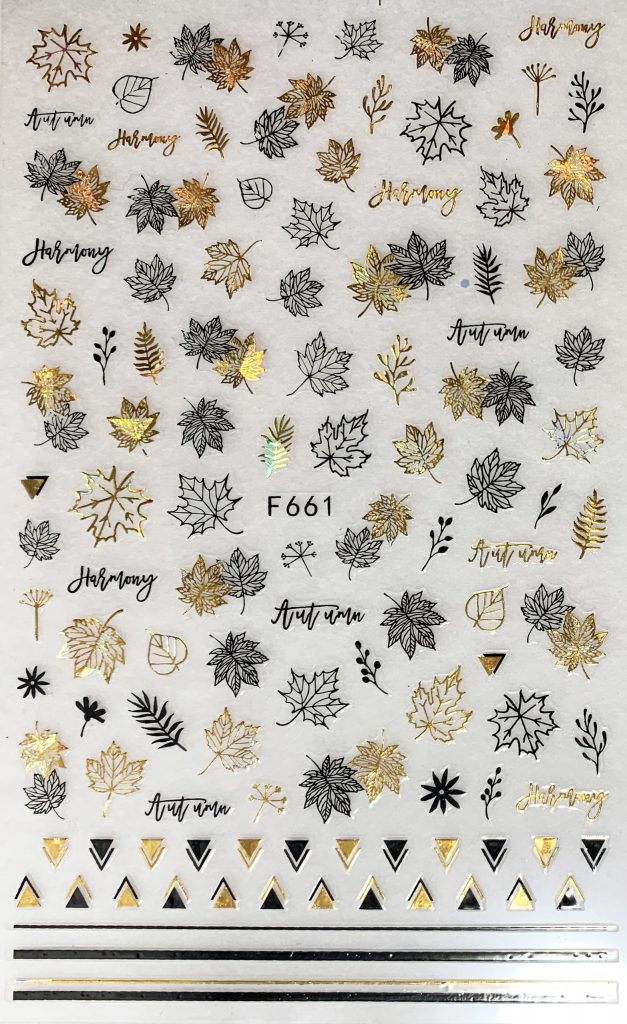 Harmony
Autumn
Harmony
Harmony
Harmony
Autumn
F661
Autumn
Harmony
Autumn
Autumn
Harmony